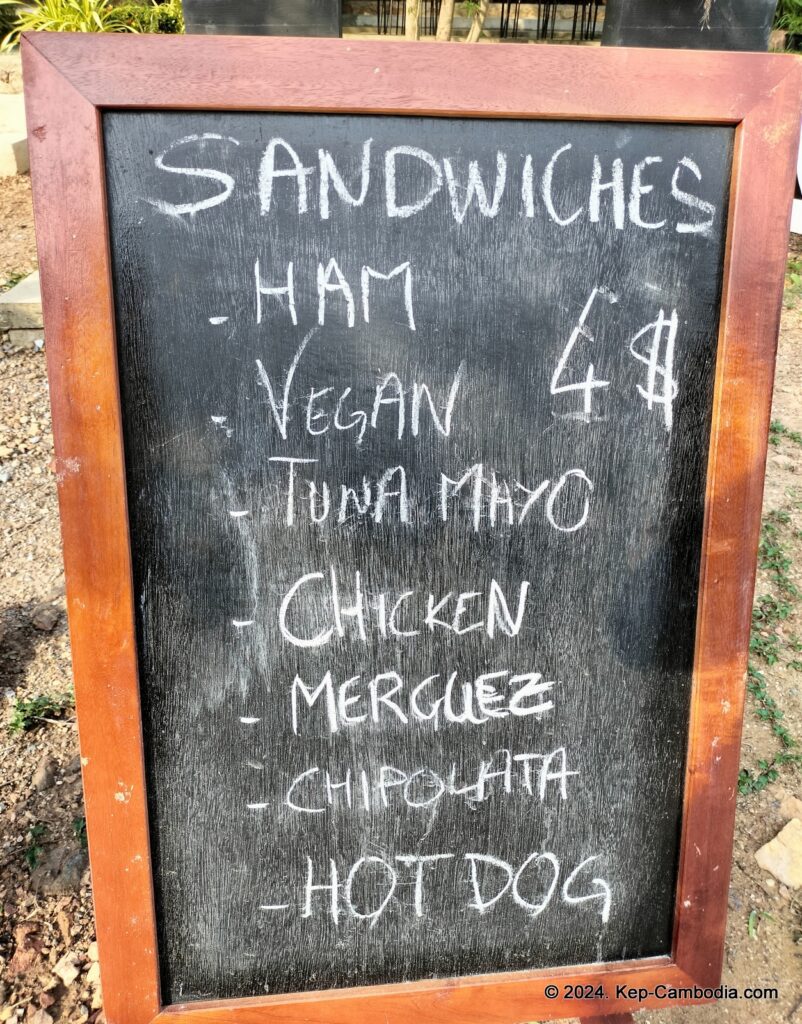 SANDWICHES
- HAM
4 $
- VEGAN
- TUNA MAYO
- CHICKEN
- MERGUEZ
- CHIPOLATA
- HOT DOG
© 2024. Kep-Cambodia.com